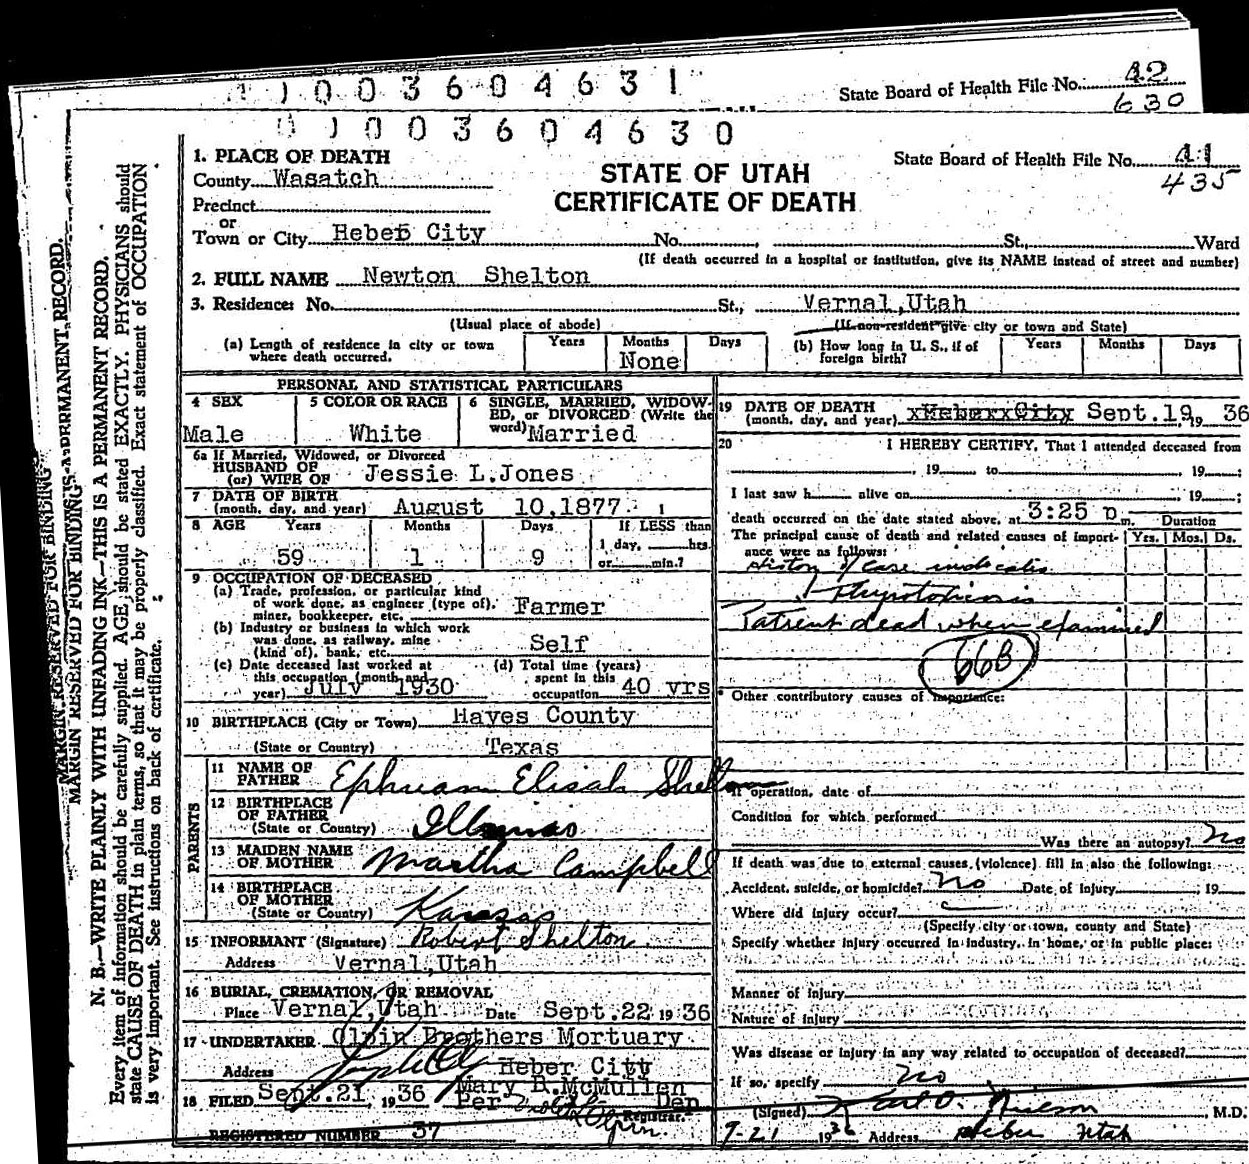 1 0 0 3 6 0 4 6 3 1
State Board of Health File No. 42
630
0 1 0 0 3 6 0 4 6 3 0
1. PLACE OF DEATH
STATE OF UTAH
State Board of Health File No. 41
435
County Wasatch
CERTIFICATE OF DEATH
Precinct
or
Town or City Heber City No. , St., Ward
(If death occurred in a hospital or institution, give its NAME instead of street and number)
2. FULL NAME Newton Shelton
3. Residence: No. St., Vernal,Utah
(Usual place of abode) (If non-resident give city or town and State)
(a) Length of residence in city or town where death occurred. Years Months None Days
(b) How long in U. S., if of foreign birth? Years Months Days
PERSONAL AND STATISTICAL PARTICULARS
4 SEX Male
5 COLOR OR RACE White
6 SINGLE, MARRIED, WIDOWED, or DIVORCED (Write the word) Married
6a If Married, Widowed, or Divorced
HUSBAND OF
(or) WIFE OF Jessie L.Jones
7 DATE OF BIRTH
(month, day, and year) August 10,1877
8 AGE Years Months Days If LESS than
59 1 9 1 day, hrs.
or min.?
9 OCCUPATION OF DECEASED
(a) Trade, profession, or particular kind
of work done, as engineer (type of),
miner, bookkeeper, etc. Farmer
(b) Industry or business in which work
was done, as railway, mine
(kind of), bank, etc. Self
(c) Date deceased last worked at
this occupation (month and
year) July 1930
(d) Total time (years)
spent in this
occupation 40 yrs
10 BIRTHPLACE (City or Town) Hayes County
(State or Country) Texas
PARENTS
11 NAME OF
FATHER Ephream Elisah Shelton
12 BIRTHPLACE
OF FATHER
(State or Country) Illinois
13 MAIDEN NAME
OF MOTHER Martha Campbell
14 BIRTHPLACE
OF MOTHER
(State or Country) Kansas
15 INFORMANT (Signature) Robert Shelton
Address Vernal,Utah
16 BURIAL, CREMATION, OR REMOVAL
Place Vernal,Utah Date Sept.22 19 36
17 UNDERTAKER Olpin Brothers Mortuary
Address Heber City
18 FILED Sept.21, 1936 Mary B.McMullen
Per Dep
Registrar.
REGISTERED NUMBER 37
19 DATE OF DEATH
(month, day, and year) xHeberxCity Sept.19, 19 36
20 I HEREBY CERTIFY, That I attended deceased from
, 19 to , 19 ;
I last saw h alive on , 19 ;
death occurred on the date stated above, at 3:25 p m. Duration
The principal cause of death and related causes of importance were as follows: Yrs. Mos. Ds.
History of case indicates
Thyrotoxicosis
Patient dead when examined
66B
Other contributory causes of importance:
If operation, date of
Condition for which performed
Was there an autopsy? no
If death was due to external causes (violence) fill in also the following:
Accident, suicide, or homicide? no Date of injury , 19
Where did injury occur?
(Specify city or town, county and State)
Specify whether injury occurred in industry, in home, or in public place:
Manner of injury
Nature of injury
Was disease or injury in any way related to occupation of deceased?
If so, specify no
(Signed) Karl O. Nielson, M.D.
9-21 1936 Address Heber Utah
MARGIN RESERVED FOR BINDING
PERMANENT RECORD.
MARGIN RESERVED FOR BINDING
N. B.—WRITE PLAINLY WITH UNFADING INK—THIS IS A PERMANENT RECORD.
Every item of information should be carefully supplied. AGE should be stated EXACTLY. PHYSICIANS should
state CAUSE OF DEATH in plain terms, so that it may be properly classified. Exact statement of OCCUPATION
is very important. See instructions on back of certificate.